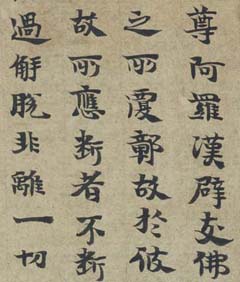 尊阿羅漢辟支佛
之所覆鄣故於彼
故所應断者不断
過解脱非離一切